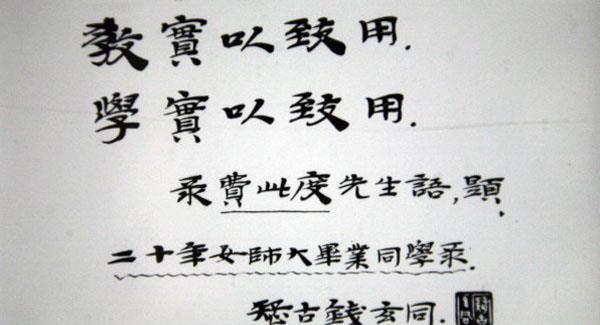 敎實以致用.
學實以致用.
录費此度先生語,題
二十年女師大畢業同學录.
疑古錢玄同.